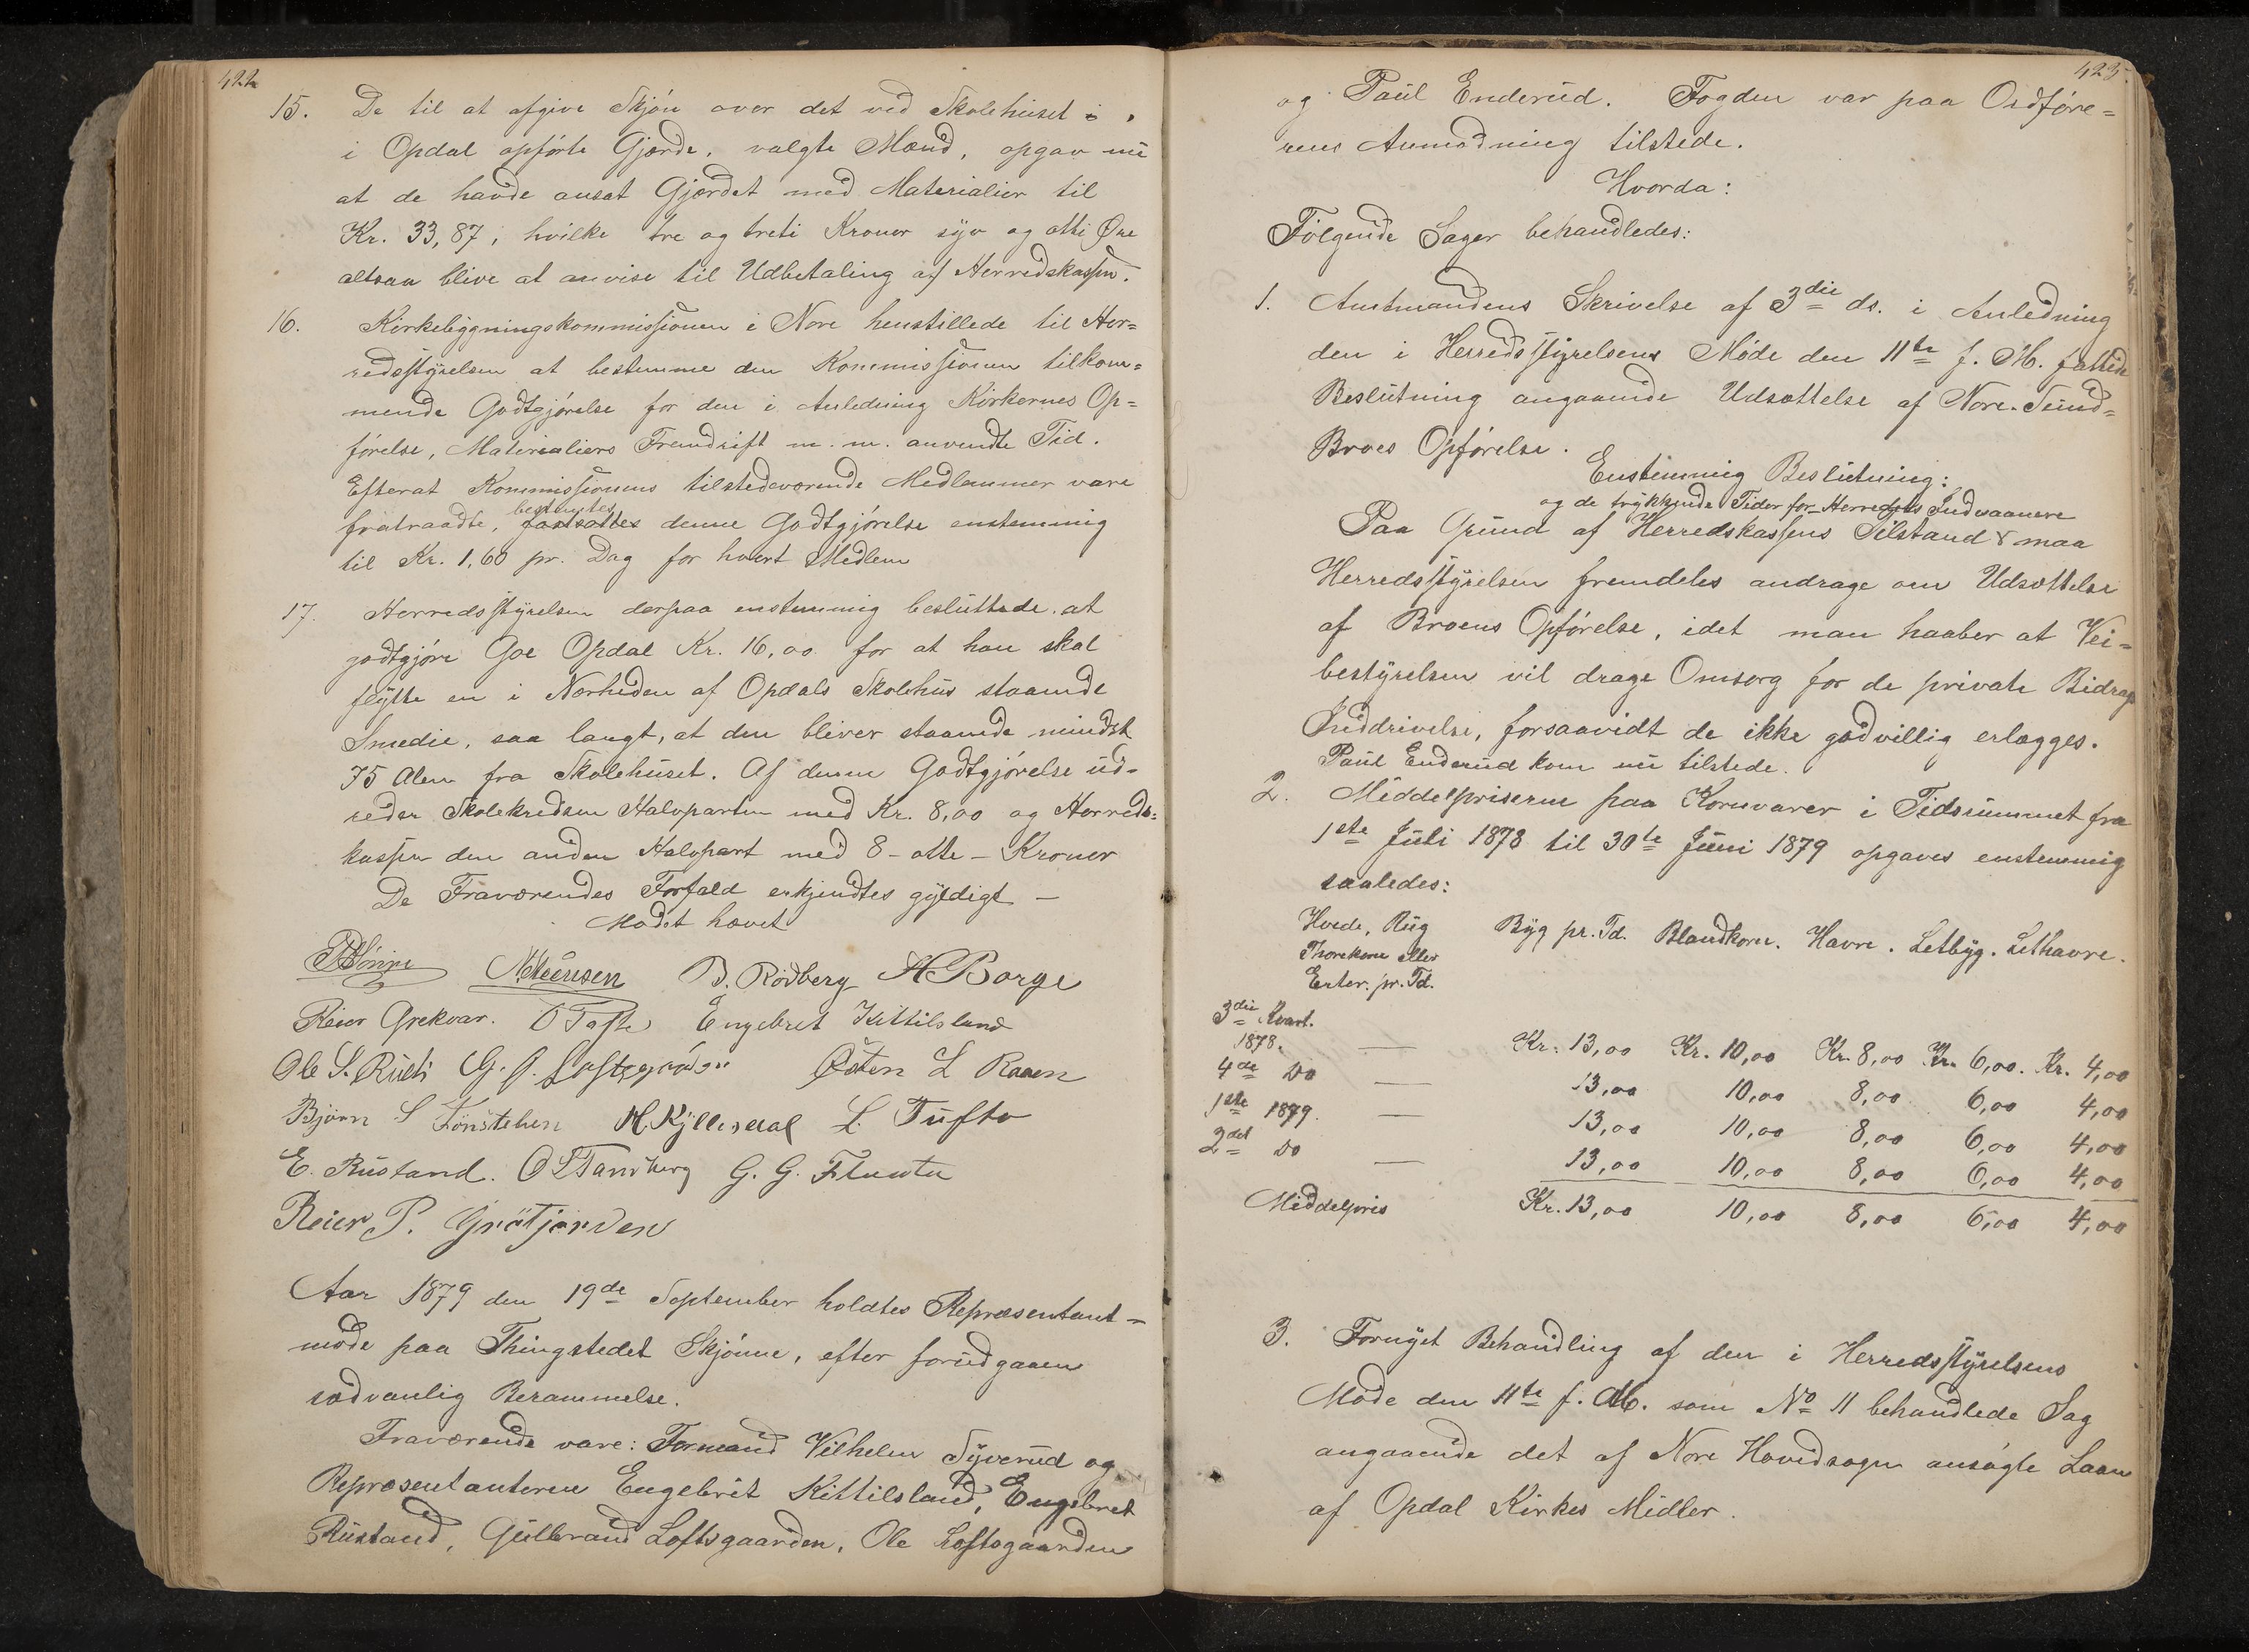 422
15. De til at afgive Skjøn over det ved Skolehuset i
i Opdal opførte Gjærde, valgte Mænd, opgav nu
at de havde ansat Gjærdet med Materialier til
Kr. 33,87, hvilke tre og treti Kroner syv og otti Øre
altsaa blive at anvise til Udbetaling af Herredskassen.
16. Kirkebygningskommissionen i Nore henstillede til Her=
redsstyrelsen at bestemme den Kommissionen tilkom=
mende Godtgjørelse for den i Anledning Kirkernes Op=
førelse, Materialiers Fremdrift m. m. anvendte Tid.
Efterat Kommissionens tilstedeværende Medlemmer vare
bestemtes
fratraadte, fastsattes denne Godtgjørelse enstemmig
til Kr. 1,60 pr. Dag for hvert Medlem
17. Herredsstyrelsen derpaa enstemmig besluttede at
godtgjøre Goe Opdal Kr. 16,00 for at han skal
flytte en i Nærheden af Opdals Skolehus staaende
Smedie, saa langt, at den bliver staaende mindst
75 Alen fra Skolehuset. Af denne Godtgjørelse ud=
reder Skolekredsen Halvparten med Kr. 8,00 og Herreds=
kassen den anden Halvpart med 8 - otte - Kroner
De Fraværendes Forfald erkjendtes gyldigt —
Mødet hævet
D. Rødberg A Borge
Reier Grekvar. O Tofte Engebret Kittilsland
Ole S. Rudi G. G. Loftsgaarden Østen L Raaen
Bjørn S Tønstehen H. Kjyllesdal L. Tufto
E. Rustand. O T Sandberg G. G. Flaata
Reier P. Grøtjorden
Aar 1879 den 19de September holdtes Repræsentant=
møde paa Thingstedet Skjønne, efter forudgaaen
sædvanlig Berammelse.
Fraværende vare: Formand Vilhelm Syverud og
Repræsentanterne Engebret Kittilsland, Engebret
Rustand, Gulbrand Loftsgaarden, Ole Loftsgaarden
423
og Paul Enderud. Fogden var paa Ordføre=
rens Anmodning tilstede.
Hvorda:
Følgende Sager behandledes:
1. Amtmandens Skrivelse af 3die ds. i Anledning
den i Herredsstyrelsens Møde den 11te f. M. fattede
Beslutning angaaende Udsættelse af Nore-Sund=
Broes Opførelse.
Enstimmig Beslutning:
og de trykkende Tider for Herredets Indvaanere
Paa Grund af Herredskassens Tilstand maa
Herredsstyrelsen fremdeles andrage om Udsættelse
af Broens Opførelse, idet man haaber at Vei=
bestyrelsen vil drage Omsorg for de private Bidrags
Inddrivelse, forsaavidt de ikke godvillig erlægges.
Paul Enderud kom nu tilstede.
2. Middelpriserne paa Kornvarer i Tidsrummet fra
1ste Juli 1878 til 30te Juni 1879 opgaves enstemmig
saaledes:
Hvede, Rug Byg pr. Td. Blandkorn. Havre. Letbyg. Lethavre.
Thorekorn eller
Erter. pr. Td.
3die Kvart.
1878. — Kr. 13,00 Kr. 10,00 Kr. 8,00 Kr. 6,00. Kr. 4,00
4de Do — 13,00 10,00 8,00 6,00 4,00
1ste 1879. — 13,00 10,00 8,00 6,00 4,00
2det Do — 13,00 10,00 8,00 6,00 4,00
Middelpris Kr. 13,00 10,00 8,00 6,00 4,00
3. Fornyet Behandling af den i Herredsstyrelsens
Møde den 11te f. M. som No 11 behandlede Sag
angaaende det af Nore Hovidsogn ansøgte Laan
af Opdal Kirkes Midler.